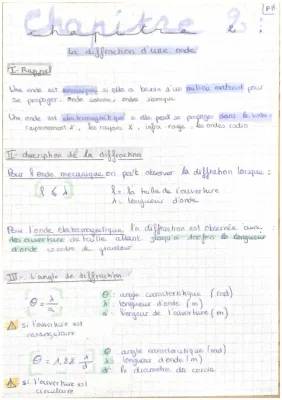 P1
Chapitre 2 :
La diffraction d'une onde
I - Rappel
Une onde est mécanique si elle a besoin d'un milieu matériel pour
se propager. onde sonore, onde sismique
Une onde est électromagnétique si elle peut se propager dans le vide :
rayonnement γ, les rayons X, infra-rouge, les ondes radio
II - description de la diffraction
Pour l'onde mécanique on peut observer la diffraction lorsque :
l ≤ λ
l = la taille de l'ouverture
λ = longueur d'onde
Pour l'onde électromagnétique la diffraction est observée aux
des ouverture de taille allant jusqu'à 100 fois la longueur
d'onde
III - L'angle de diffraction
θ = λ/a
θ : angle caractéristique (rad)
λ : longueur d'onde (m)
a : largeur de l'ouverture (m)
⚠ si l'ouverture est
rectangulaire
θ = 1,22 λ/d
θ angle caractéristique (rad)
λ longueur d'onde (m)
le diamètre du cercle
⚠ si l'ouverture est
circulaire